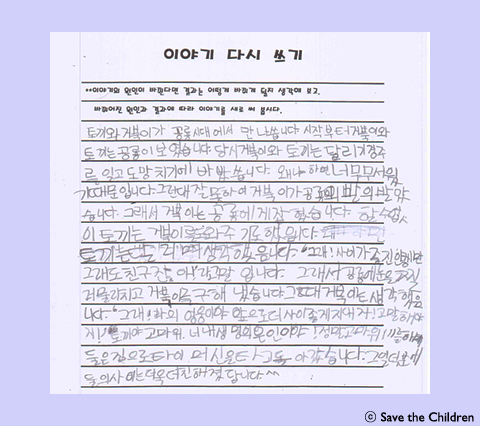 이야기 다시 쓰기
**이야기의 원인이 바뀐다면 결과는 어떻게 바뀌게 될지 생각해 보고,
바뀌어진 원인과 결과에 따라 이야기를 새로 써 봅시다.
토끼와 거북이가 공룡시대에서 만나씁니다 시작부터 거북이와
토끼는 공룡이 보였습니다 당시 거북이와 토끼는 달리기경주
를 잊고 도망치기에 바빴씁니다. 왜냐하면 너무무서웠
기때문입니다. 그런대 잘못하여 거북이가 공룡의 발의 밟
습니다. 그래서 거북이는 공룡에게 잡혔습니다. 할수없
이 토끼는 거북이를 도와주기로 했습니다
토끼는 생각했습니다. "그래! 사이가
그래도 친구잖아!" 라고 말입니다. 그래서 공룡
물리치고 거북이 구해냈습니다 그때 거북이는 생각했습
니다. "그래! 나의 영웅이야 앞으로 더 사이좋게 지내자! 고말해야
지! 토끼야 고마워. 너 내생명의 은인이야! 정말고마워
둘은 집으로 타이머신을 타고 돌아갔습니다. 그일 때문에
둘의 사이는 더욱더 친해졌답니다.^^
ⓒ Save the Children